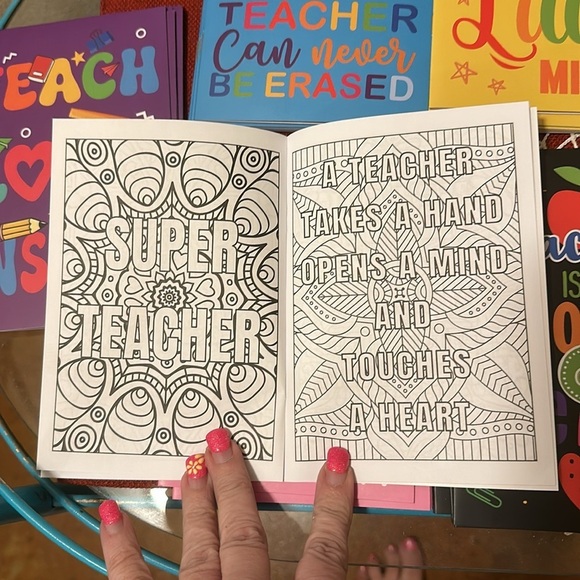 TEACH
TEACHER
Can never
BE ERASED
MI
SUPER
TEACHER
A TEACHER
TAKES A HAND
OPENS A MIND
AND
TOUCHES
A HEART
IS